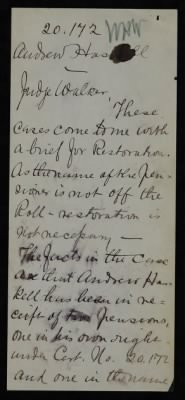 20.172
Andrew Has ll
Judge Walker
These
Cases come to me with
a brief for Restoration.
As the name of the Pen-
sioner is not off the
Roll - restoration is
not necessary -
The facts in the Case
are that Andrew Has-
kell has been in re-
ceipt of two Pensions,
one in his own right
under Cert. No. 20.172
and one in the name